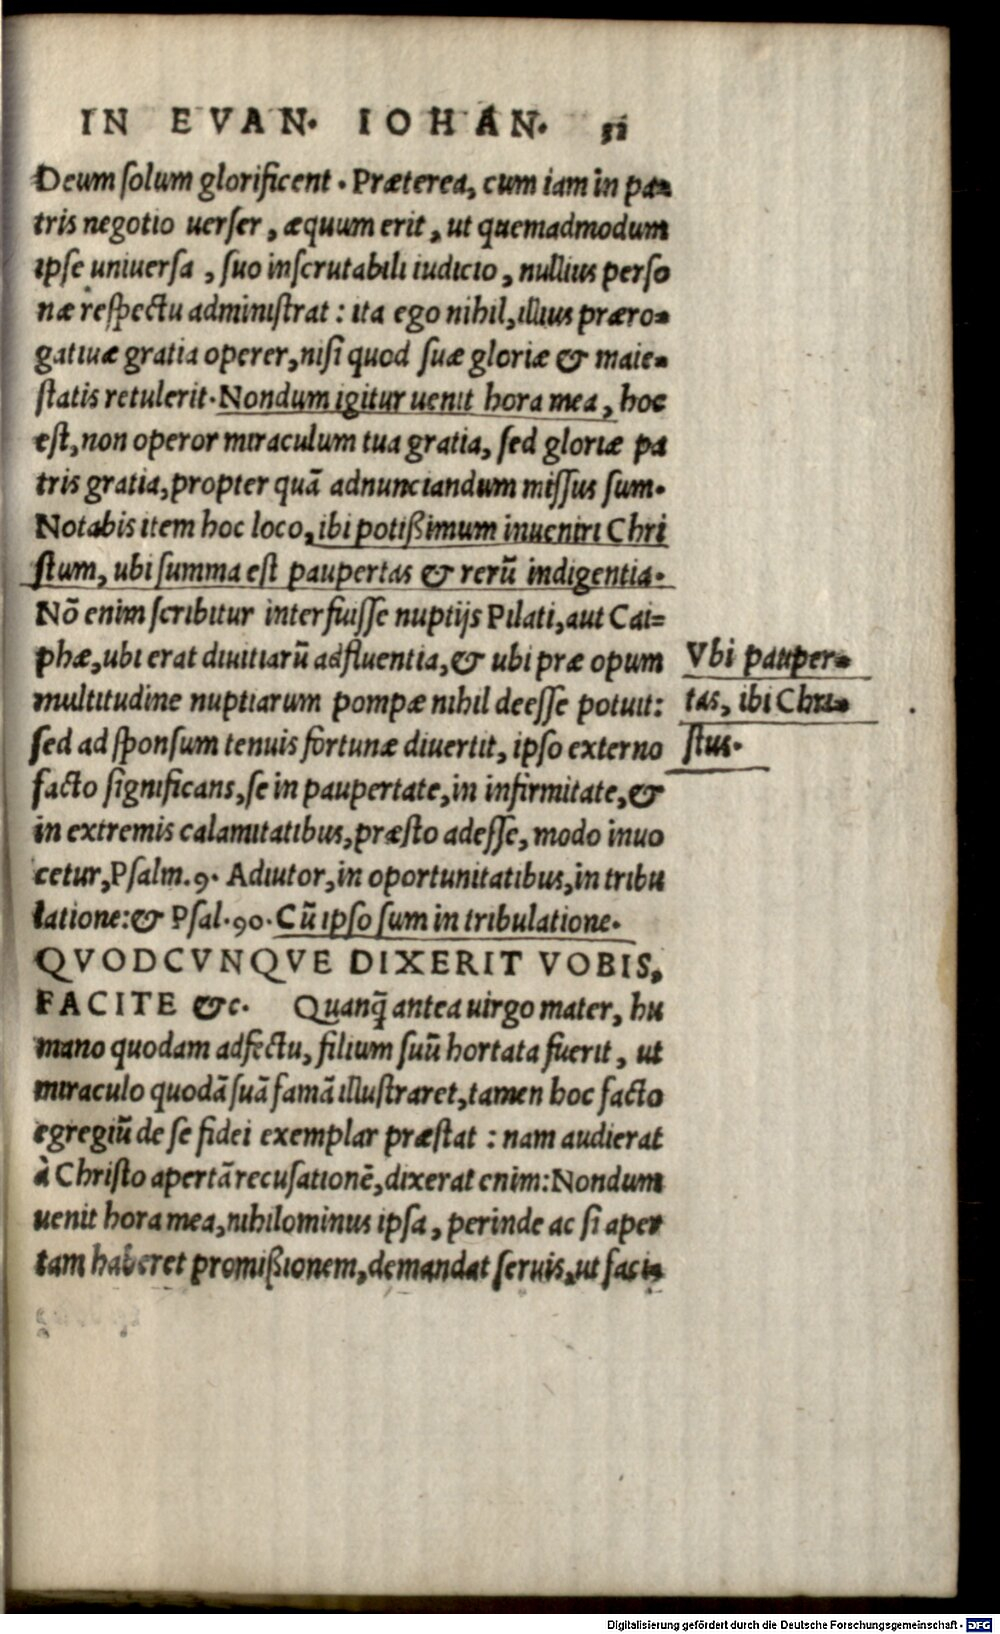 IN EVAN. IOHAN. 51
Deum ſolum glorificent. Præterea, cum iam in pa-
tris negotio uerſer, æquum erit, ut quemadmodum
ipſe uniuerſa, ſuo inſcrutabili iudicio, nullius perſo
næ reſpectu adminiſtrat: ita ego nihil, illius præro-
gatiuæ gratia operer, niſi quod ſuæ gloriæ & maie-
ſtatis retulerit. Nondum igitur uenit hora mea, hoc
eſt, non operor miraculum tua gratia, ſed gloriæ pa
tris gratia, propter quã adnunciandum miſſus ſum.
Notabis item hoc loco, ibi potißimum inueniri Chri
ſtum, ubi ſumma eſt paupertas & rerũ indigentia.
Nõ enim ſcribitur interfuiſſe nuptijs Pilati, aut Cai=
phæ, ubi erat diuitiarũ adfluentia, & ubi præ opum
multitudine nuptiarum pompæ nihil deeſſe potuit:
ſed ad ſponſum tenuis fortunæ diuertit, ipſo externo
facto ſignificans, ſe in paupertate, in infirmitate, &
in extremis calamitatibus, præſto adeſſe, modo inuo
cetur, Pſalm. 9. Adiutor, in oportunitatibus, in tribu
latione: & Pſal. 90. Cũ ipſo ſum in tribulatione.
QVODCVNQVE DIXERIT VOBIS,
FACITE &c. Quanq̃ antea uirgo mater, hu
mano quodam adfectu, filium ſuũ hortata fuerit, ut
miraculo quodã ſuã famã illuſtraret, tamen hoc facto
egregiũ de ſe fidei exemplar præſtat: nam audierat
à Chriſto apertã recuſationẽ, dixerat enim: Nondum
uenit hora mea, nihilominus ipſa, perinde ac ſi aper
tam haberet promißionem, demandat ſeruis, ut faci-
Vbi pauper-
tas, ibi Chri-
ſtus.
Digitalisierung gefördert durch die Deutsche Forschungsgemeinschaft - DFG